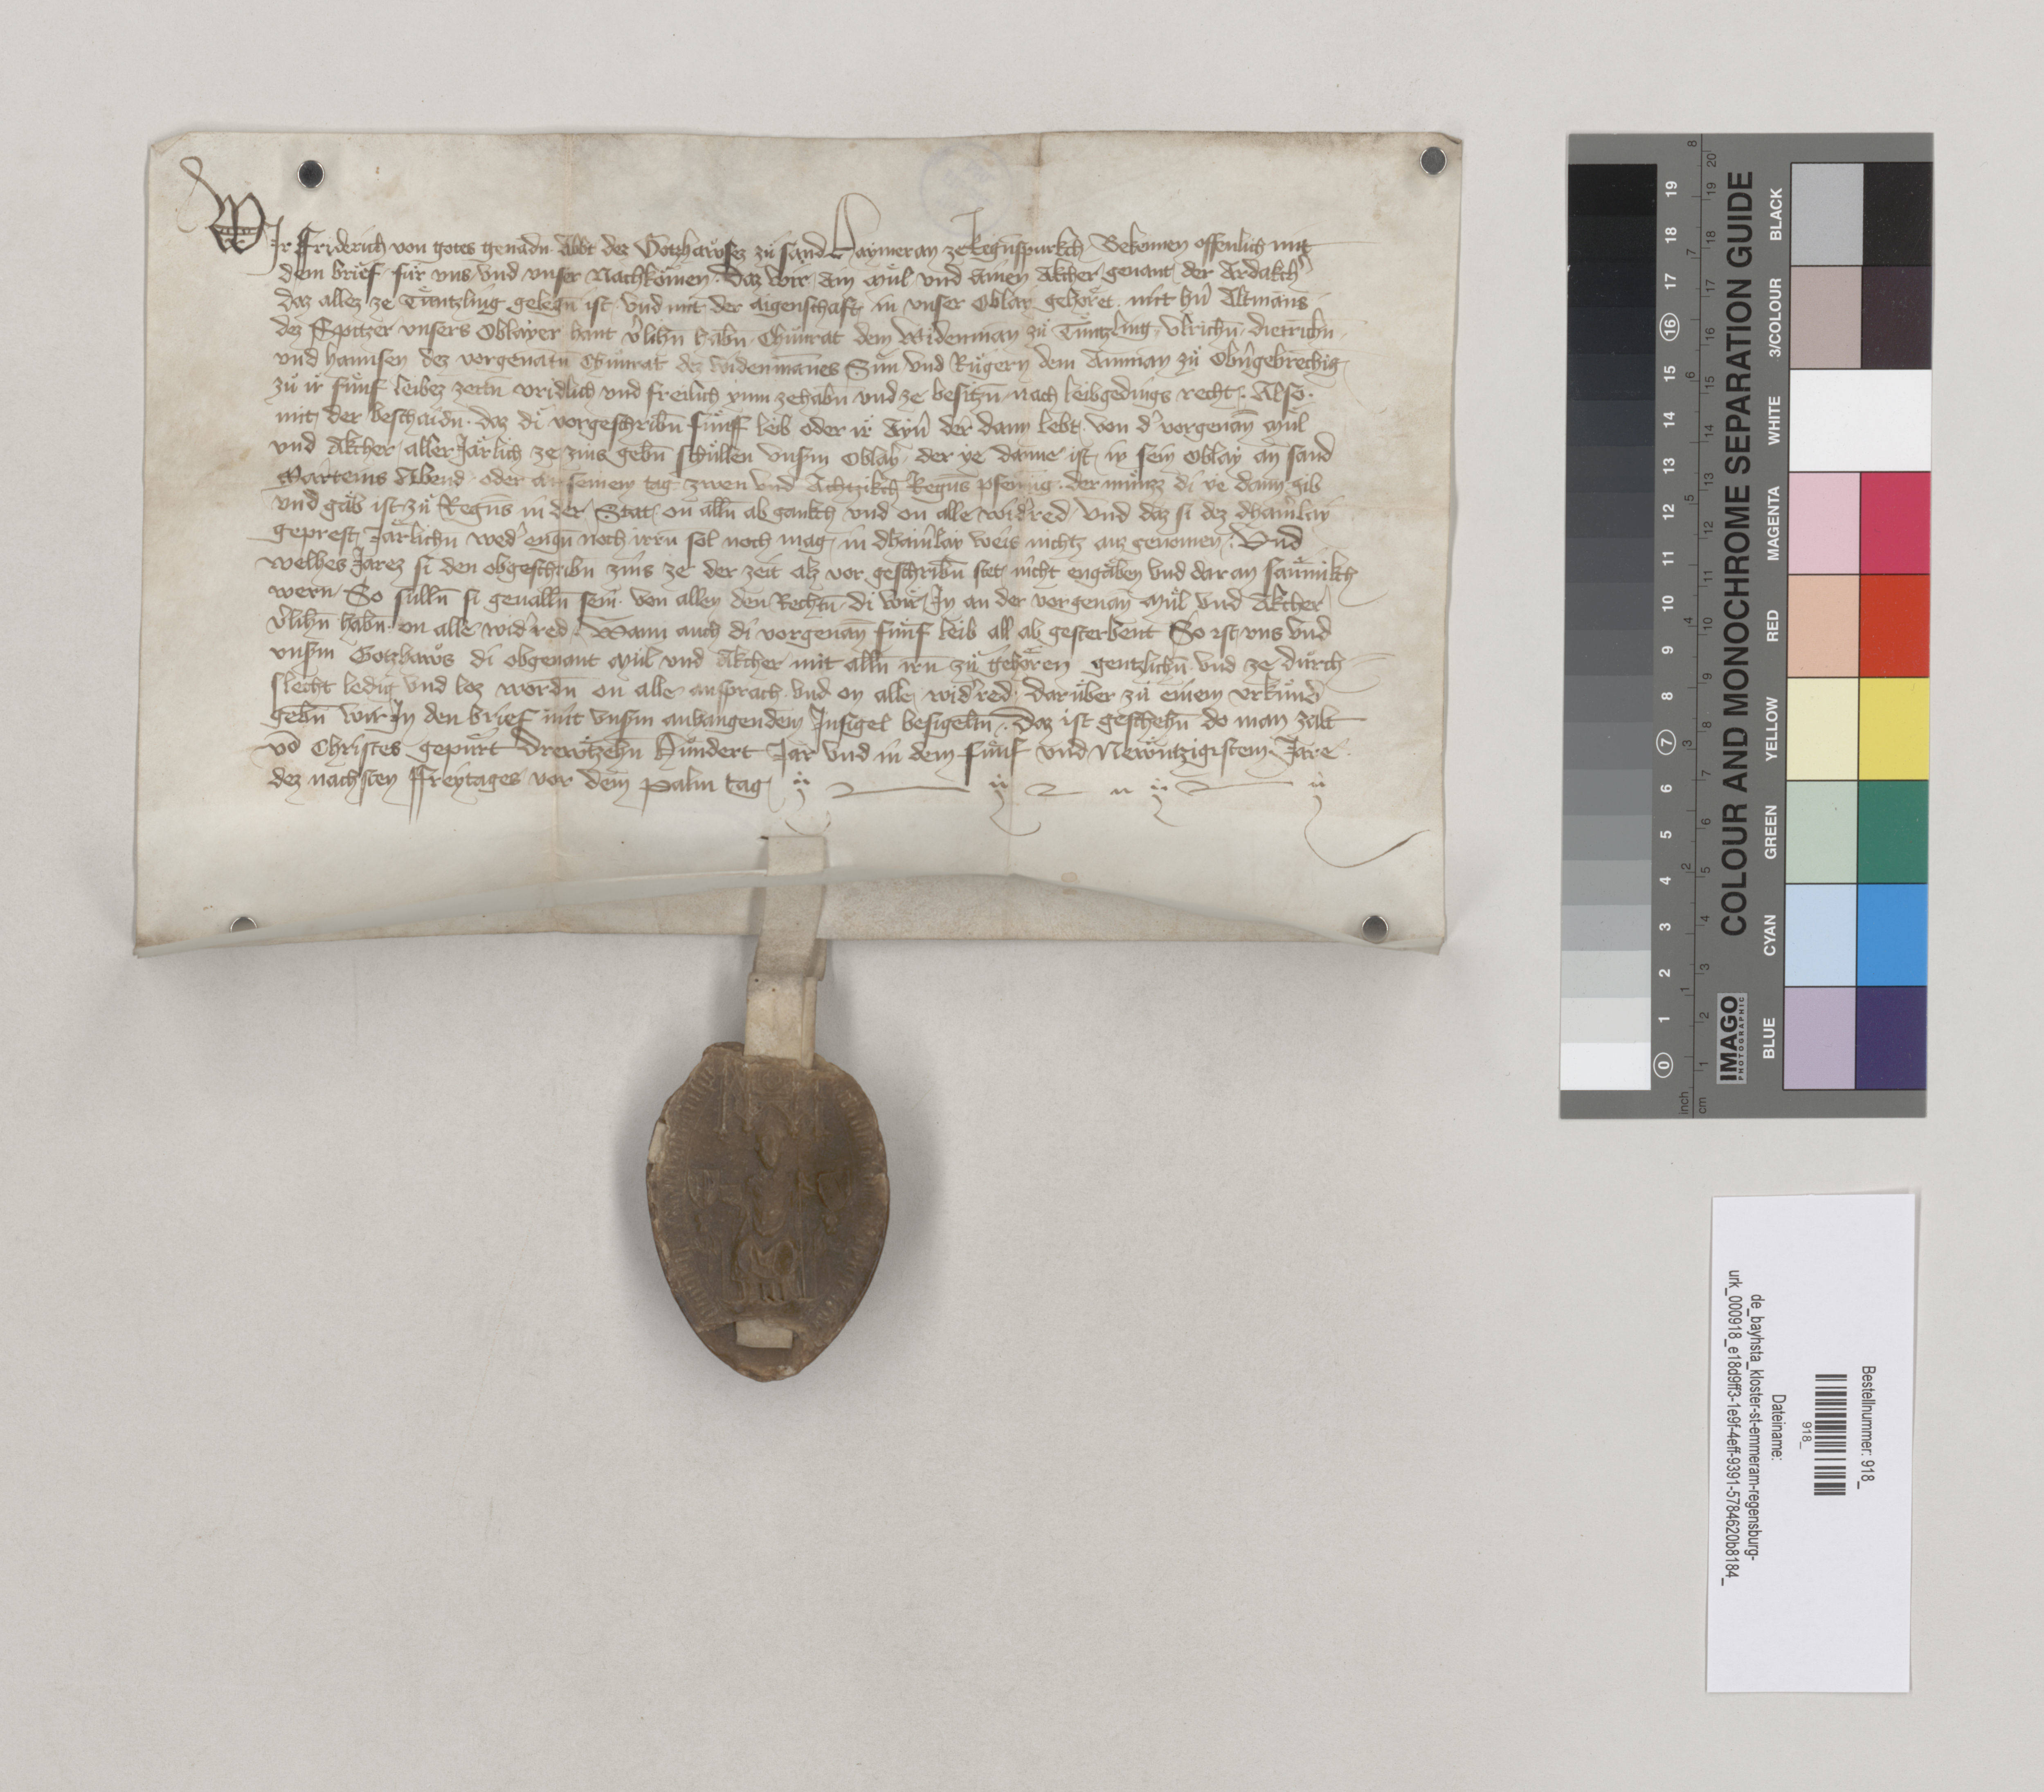 Wir Fridereich von gotes genadn Abbt des Gotzhawsez zu sand Haymeran ze Regenspurkch Bekennen offenlich mit
dem brief fur uns und unser Nachkomen daz wir Ain Mül und Ainen Akcher genant der
daz allez ze Tüntzling gelegn ist und mit der aigenschaft in unser Oblay gehoret mit hn Altmans
dez Spitzer unsers Oblayer hant vlihn habn Chunrat dem Widenman zu Tüntzling Ulrichn dietrichn
und hannsen dez vorgenatn Chunrat dez Widenmannes Sün und Rügern dem Amman zü
zü ir funf leibez zeitn vridlich und freilich ynn zehabn und ze besitzn nach leibgedings recht Also
mit der beschaidn daz di vorgeschribn fünff leib oder ir Ayn der dann lebt von d vorgenan Mül
und Akcher aller Jarlich ze zins gebn schüllen unsm Oblay der ye danne ist in sein Oblay an sand
Marteins Abend oder an seinem tag zwen und Achtzikch Regns pfening der münzz di ye dann gib
und gab ist zü Regns in der Stat on alln ab gankch und on alle widred Und daz si dez dhainlay
geprest Jarlichn wed engn noch irrn sol noch mag in dhainlay weis nichtz auz genomen Und
welhes Jarez si den obgeschribn zins ze der zeit alz vor geschribn stet nicht engäben und dar an säwmikch
wern So sulln si gevalln sein von allen den Rechtn di wir In an der vorgenan Mül und Akcher
vlihn habn on alle widred Wann auch di vorgenan funf leib all ab gesterbent So ist uns und
unsm Gotzhaws di obgenant Mül und Akcher mit alln irn zü gehoren gentzlichn und ze durch
slecht ledig und loz wordn on alle ansprach und on alle widred darüber zu einem urkund
gebn wir In den brief mit unsm anhangendem Insigel besigeltn Daz ist geschehn do man zalt
vo Christes gepürt Drewtzehn Hundert Jar und in dem funf und Newntzigistem Jare
dez nachsten Freytages vor dem Palm tag
COLOUR AND MONOCHROME SEPARATION GUIDE
IMAGO
PHOTOGRAPHIC
BLUE CYAN GREEN YELLOW RED MAGENTA WHITE 3/COLOUR BLACK
0 1 2 3 4 5 6 7 8 9 10 11 12 13 14 15 16 17 18 19
inch 1 2 3 4 5 6 7 8
cm 1 2 3 4 5 6 7 8 9 10 11 12 13 14 15 16 17 18 19 20
Bestellnummer: 918_
918_
Dateiname:
de_bayhsta_kloster-st-emmeram-regensburg-
urk_000918_e18d9ff3-1e9f-4eff-9391-5784620b8184_